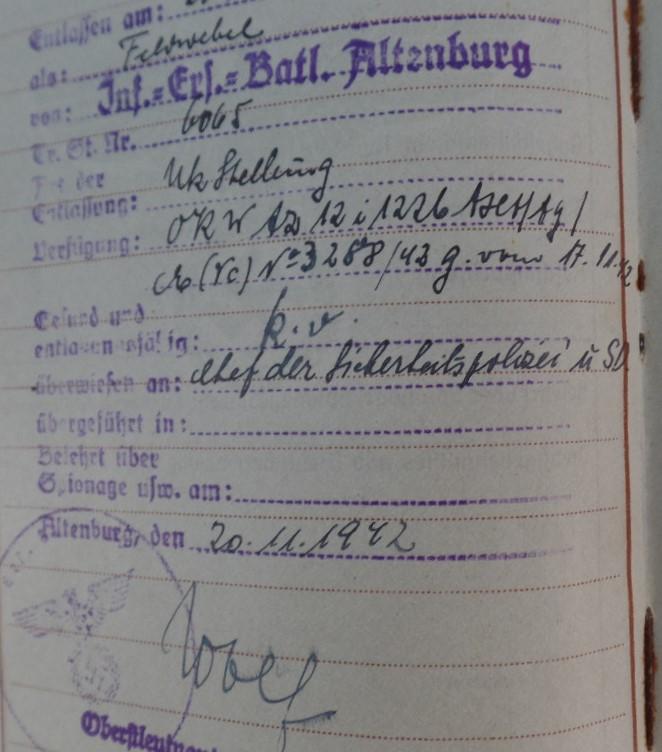 Entlassen am:
als: Feldwebel
von: Inf.=Ers.=Batl. Altenburg
Tr. St. Nr. 6065
der Uk Stellung
Entlassung:
Verfügung: OKW Az 12 i 1226
Nº 3288/42 g. vom 17.11.42
Gesund und
entlassungsfähig: k.v.
überwiesen an: Chef der Sicherheitspolizei u SD
übergeführt in:
Belehrt über
Spionage usw. am:
Altenburg, den 20.11.1942
Oberstleutnant